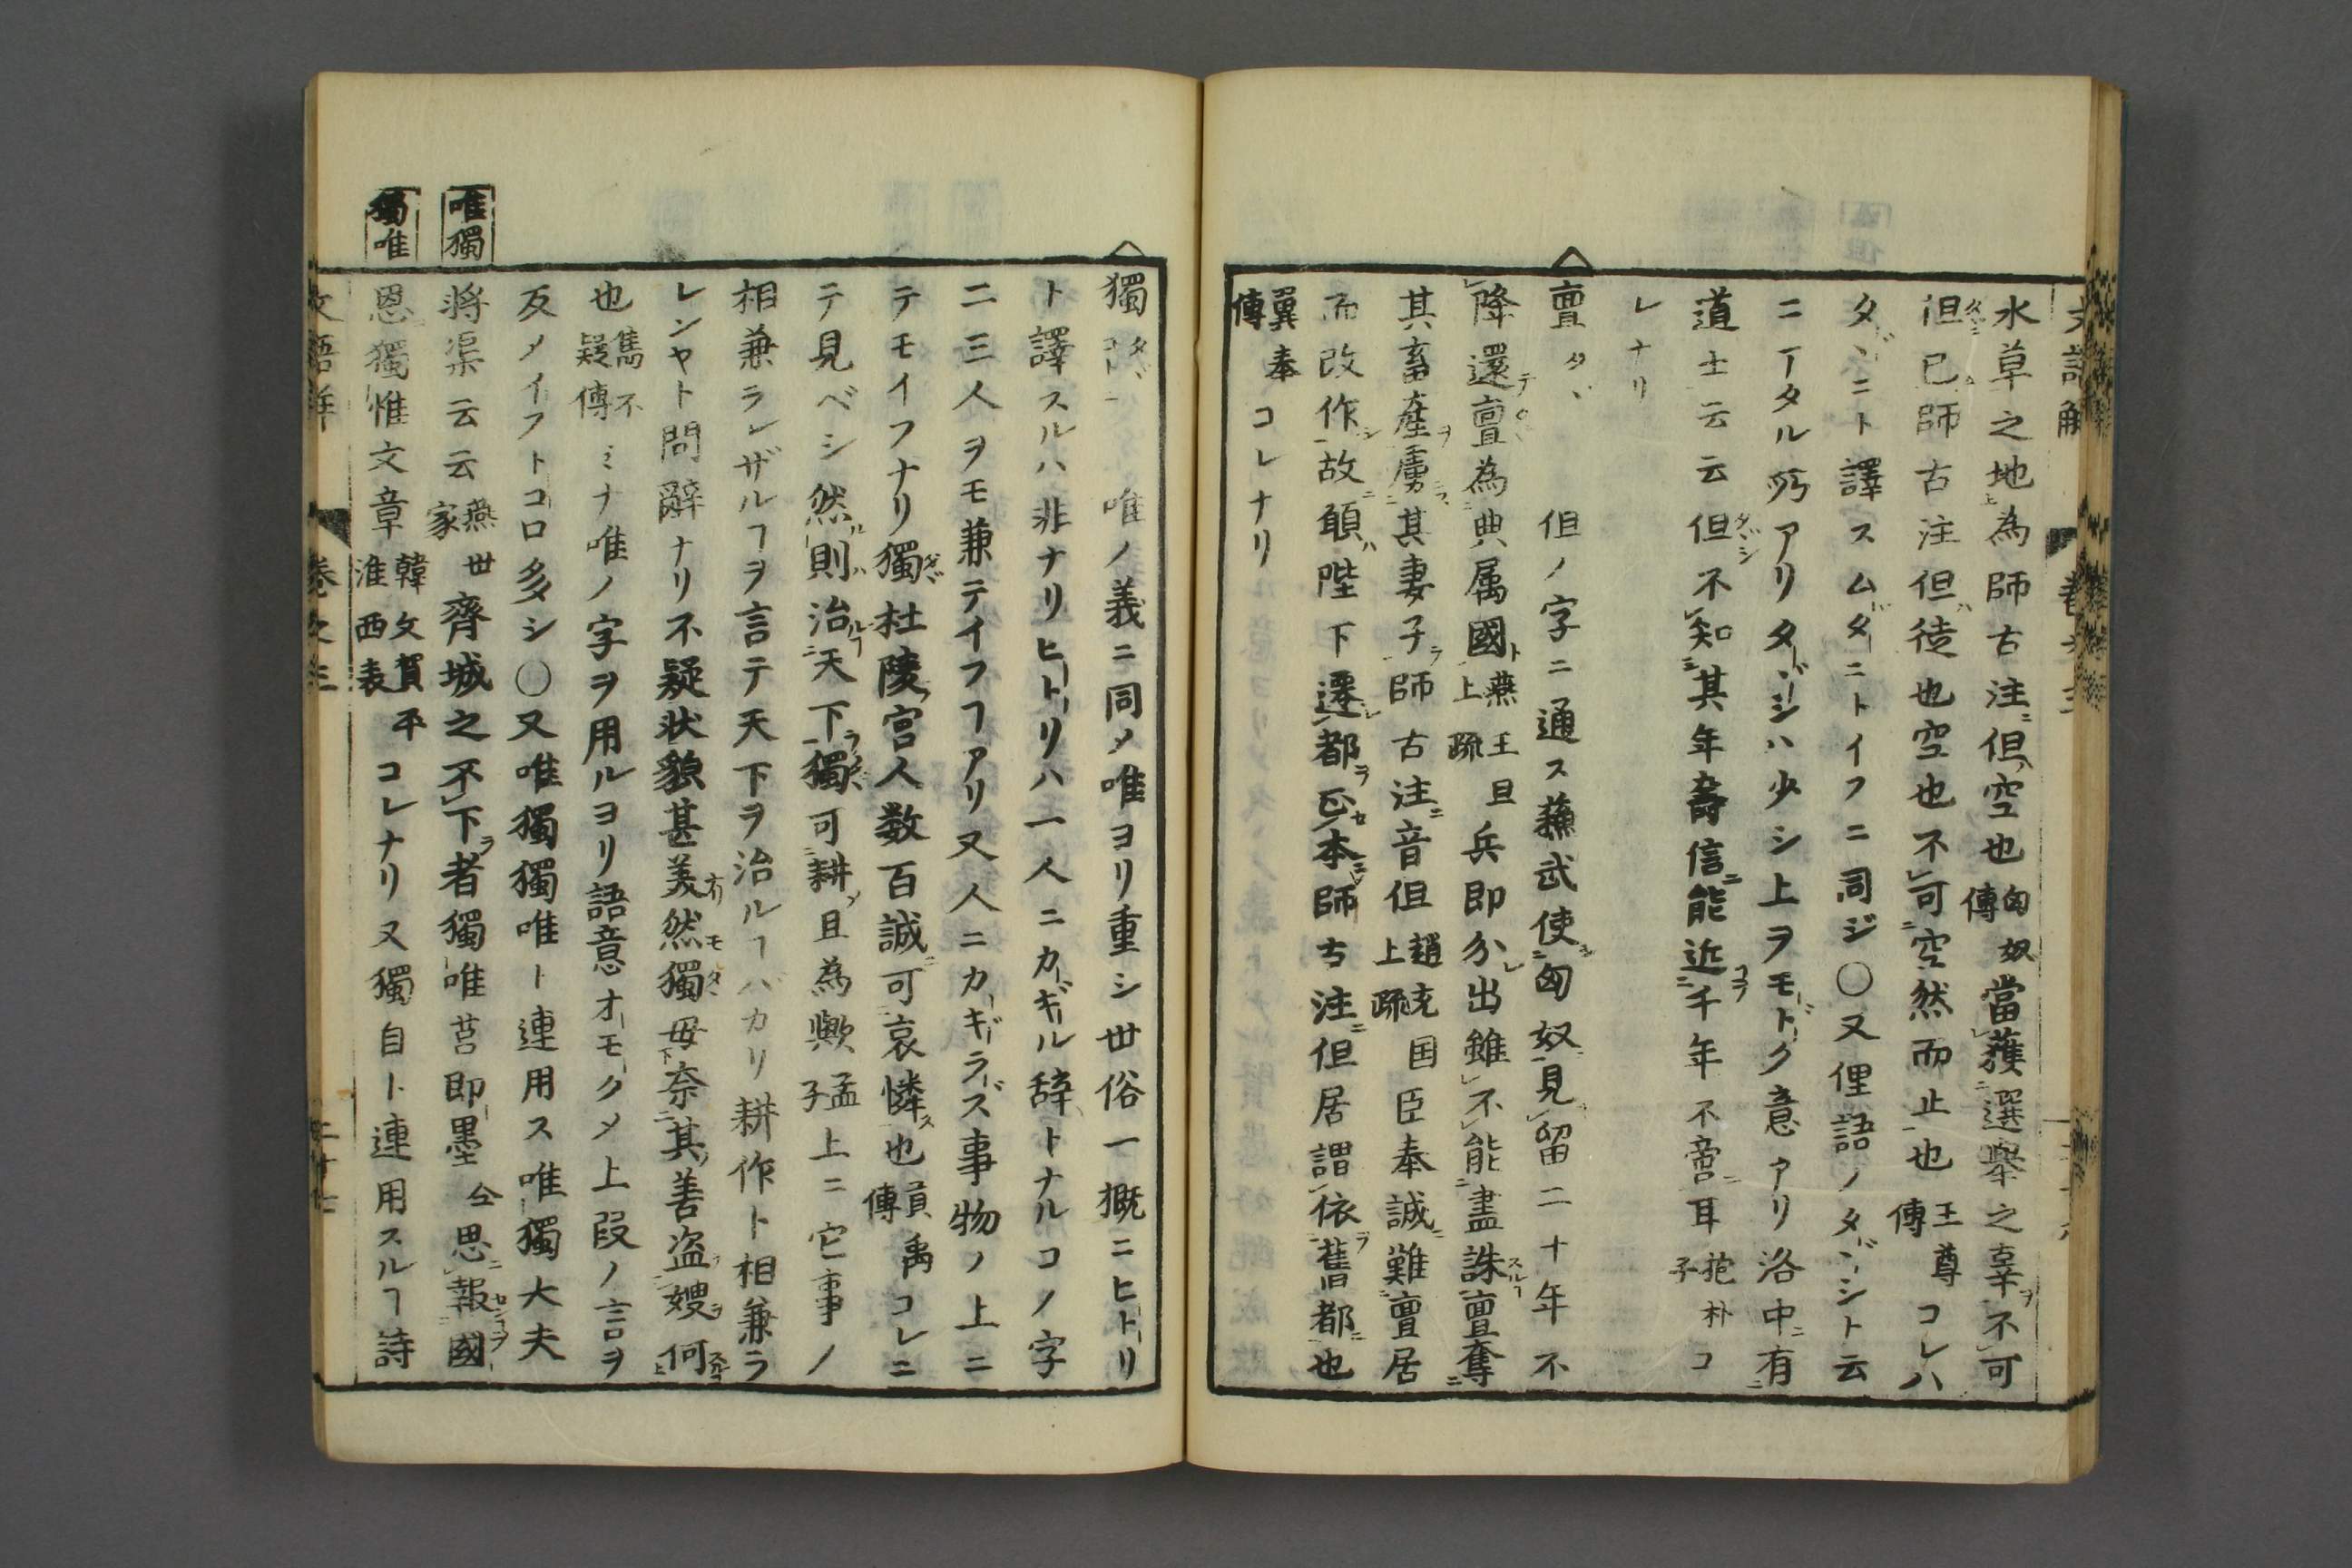 水草之地為師古注但空也匈奴傳當獲選舉之辜不可
但已師古注但徒也空也不可空然而止也王尊傳コレハ
タヾニト譯スムダニトイフニ同ジ〇又俚語ノタヾシト云
ニ一タル所アリタヾシハ少シ上ヲモドク意アリ洛中有
道士云云但不知其年壽信能近千年不啻耳抱朴子コ
レナリ
亶タヾ 但ノ字ニ通ス蘇武使匈奴見留二十年不
降還亶為典属國燕王旦上疏兵即分出雖不能盡誅亶奪
其畜産虜其妻子師古注音但趙充国上疏臣奉誠難亶居
而改作故願陛下遷都正本師古注但居謂依舊都也
翼奉傳コレナリ
獨 唯ノ義ニ同メ唯ヨリ重シ世俗一概ニヒトリ
ト譯スルハ非ナリヒトリハ一人ニカギル辞トナルコノ字
二三人ヲモ兼テイフヿアリ又人ニカギラズ事物ノ上ニ
テモイフナリ獨杜陵宮人数百誠可哀憐也貢禹傳コレニ
テ見ベシ然則治天下獨可耕且為歟孟子上ニ它事ノ
相兼ラレザルヿヲ言テ天下ヲ治ルヿバカリ耕作ト相兼ラ
レンヤト問辭ナリ不疑状貌甚美然獨毋奈其善盗嫂何
也雋不疑傳ミナ唯ノ字ヲ用ルヨリ語意オモクメ上段ノ言ヲ
反メイフトコロ多シ〇又唯獨獨唯ト連用ス唯獨大夫
將渠云云燕世家齊城之不下者獨唯莒即墨仝思報國
恩獨惟文章韓文賀平淮西表コレナリ又獨自ト連用スルヿ詩
唯獨
獨唯
文語解 卷之三